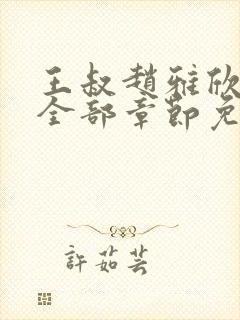 王叔趙雅欣
全部章節免
許茹芸